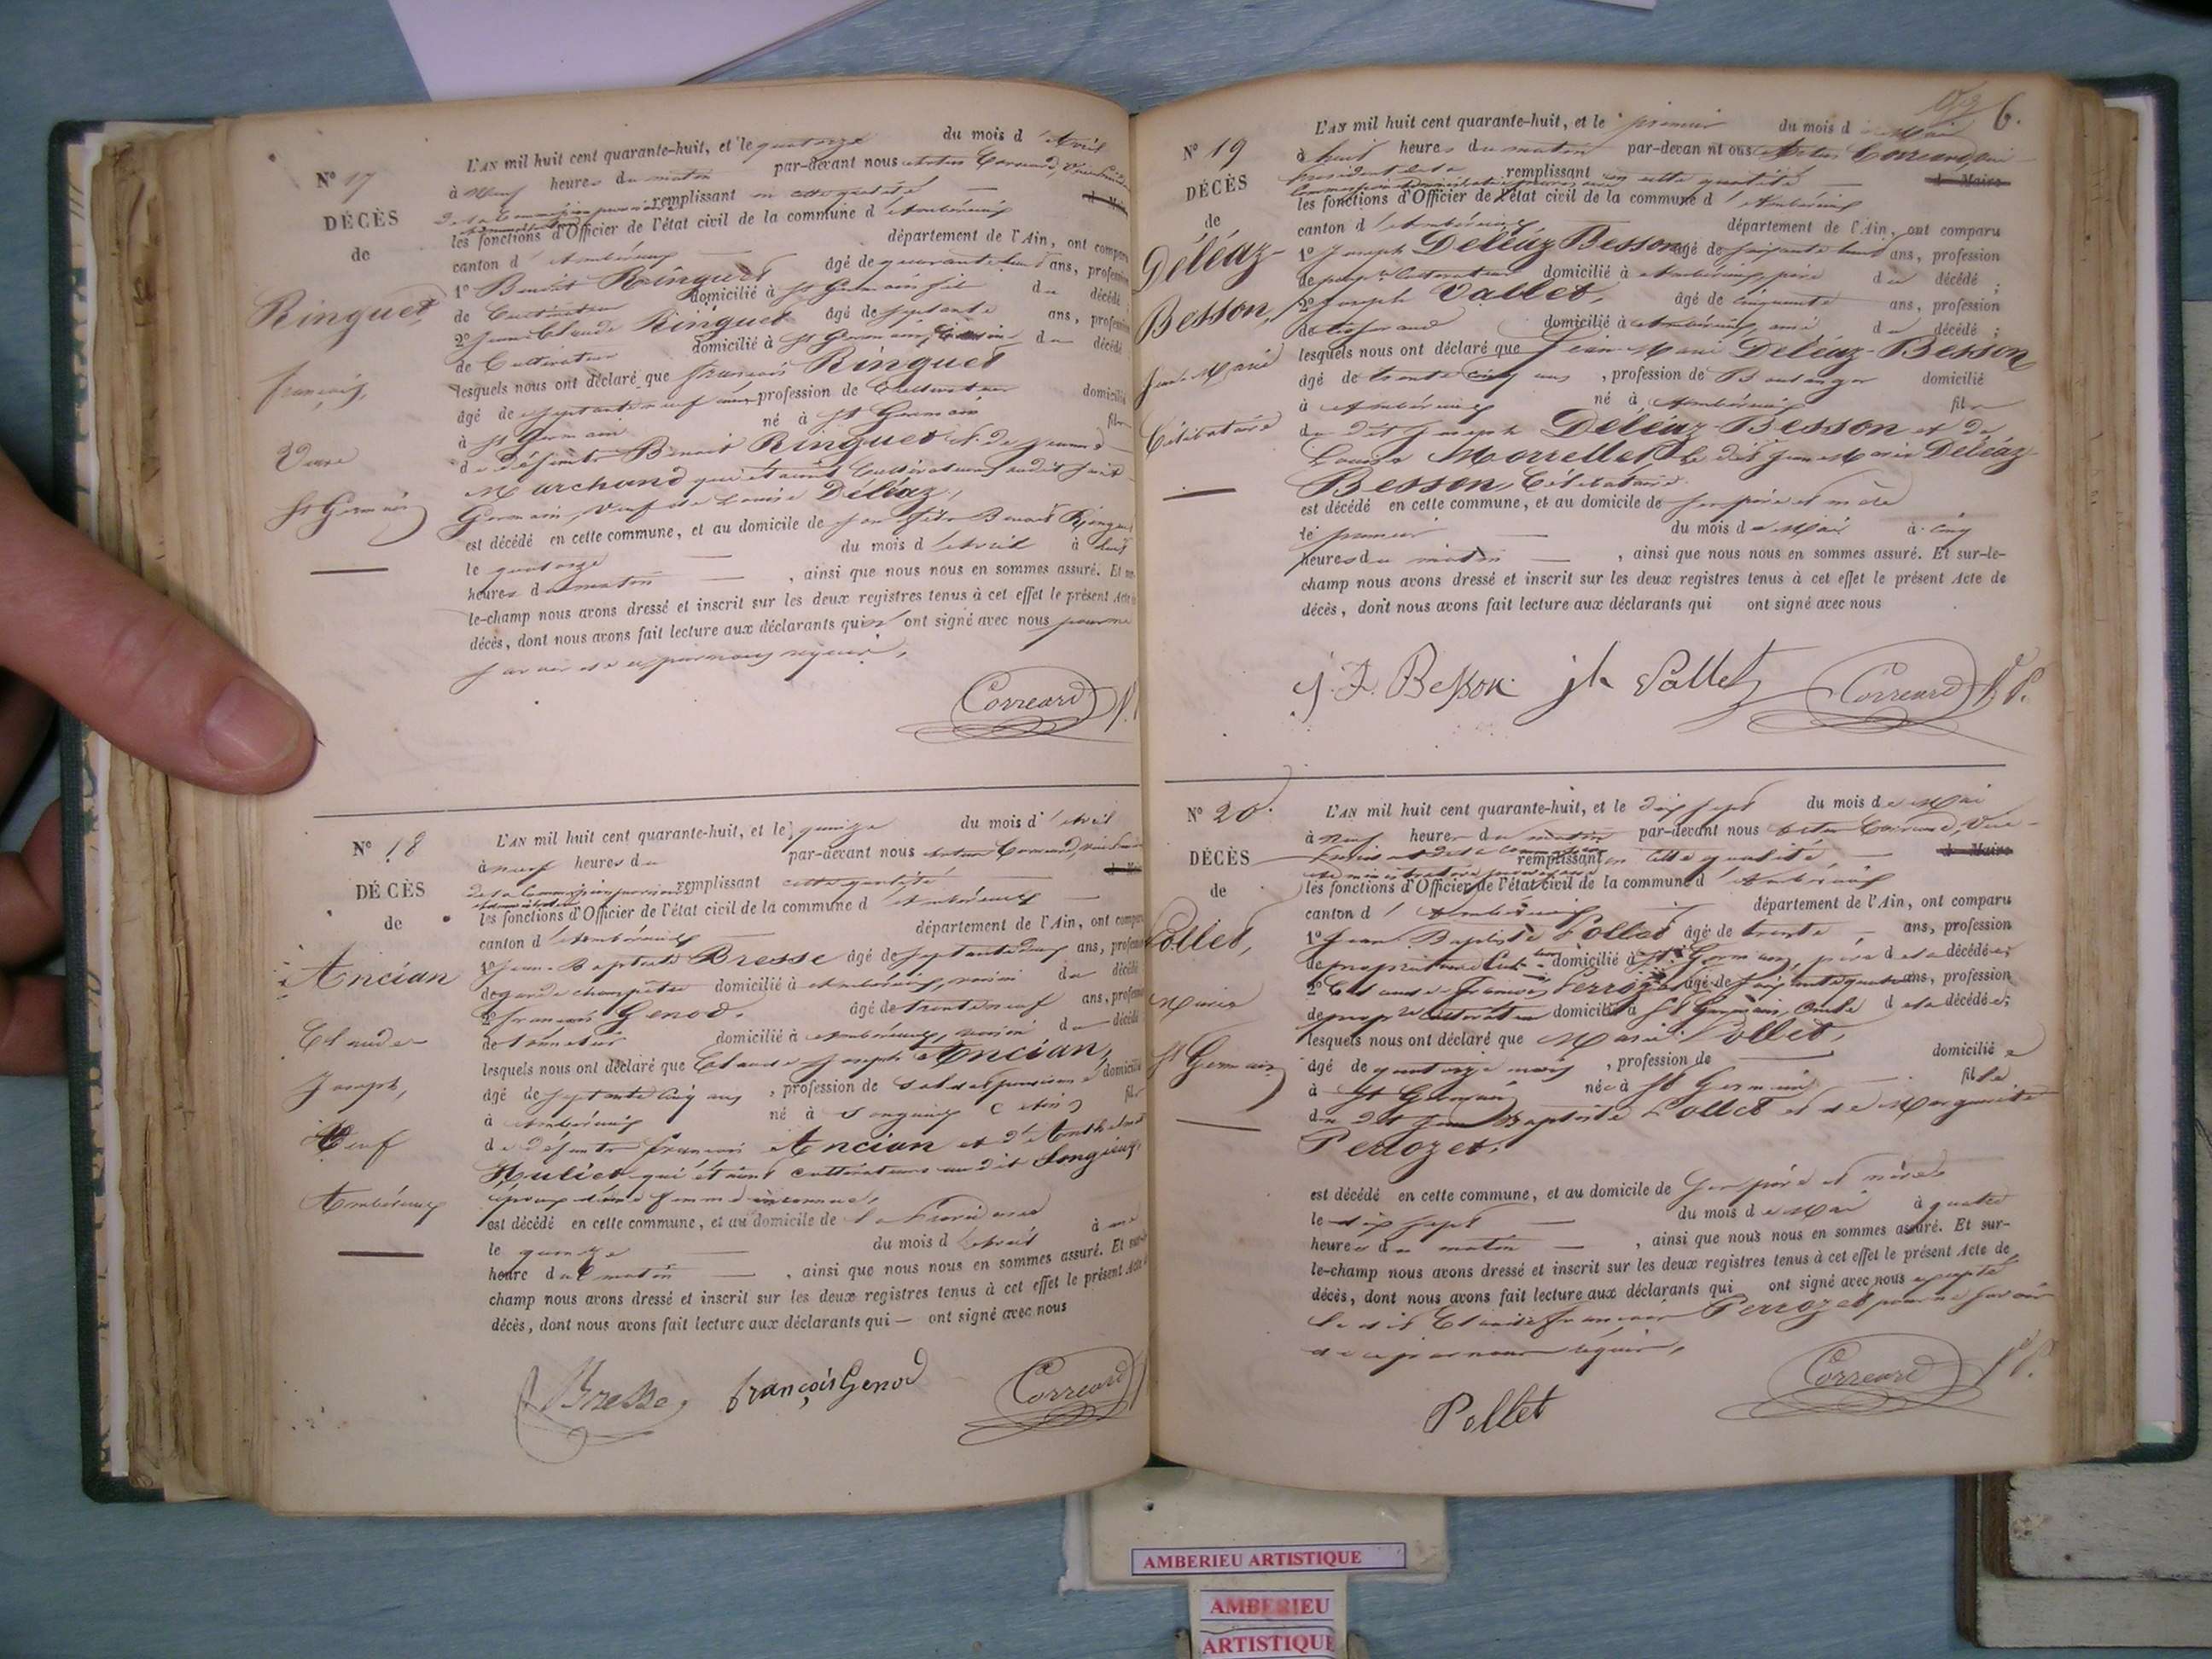 N° 17
DÉCÈS
de
Ringuet,
françois,
St Germain
L'AN mil huit cent quarante-huit, et le quatorze du mois d'Avril
à neuf heures du matin par-devant nous
remplissant en cette qualité
les fonctions d'Officier de l'état civil de la commune d'Ambérieux
canton d'Ambérieux département de l'Ain, ont comparu
1° Benoit Ringuet âgé de quarante huit ans, profession
de Cultivateur domicilié à St Germain fils du décédé
2° Jean Claude Ringuet âgé de septante ans, profession
de Cultivateur domicilié à St Germain, du décédé
lesquels nous ont déclaré que françois Ringuet
âgé de septante neuf ans, profession de Cultivateur domicilié
à St Germain né à St Germain fils
de défunts Benoit Ringuet et de Jeanne
Marchand qui étaient Cultivateurs audit Saint
Germain, veuf de Louise Déléaz,
est décédé en cette commune, et au domicile de son fils Benoit Ringuet
le quatorze du mois d'Avril à huit
heures du matin, ainsi que nous nous en sommes assuré. Et sur-
le-champ nous avons dressé et inscrit sur les deux registres tenus à cet effet le présent Acte de
décès, dont nous avons fait lecture aux déclarants qui n'ont signé avec nous pour ne
savoir de ce par nous requis,
Correard
N° 18
DÉCÈS
de
Ancian
Claude
Joseph,
Veuf
Ambérieux
L'AN mil huit cent quarante-huit, et le quinze du mois d'Avril
à neuf heures du par-devant nous
remplissant cette qualité
les fonctions d'Officier de l'état civil de la commune d'Ambérieux
canton d'Ambérieux département de l'Ain, ont comparu
1° Jean-Baptiste Bresse âgé de septante deux ans, profession
de garde champêtre domicilié à Ambérieux, voisin du décédé
2° françois Genod. âgé de trente neuf ans, profession
de domicilié à Ambérieux, voisin du décédé
lesquels nous ont déclaré que Claude Joseph Ancian,
âgé de septante cinq ans, profession de domicilié
à Ambérieux né à Songieux (Ain) fils
de défunts françois Ancian et d'Anthelmette
Huliet qui étaient cultivateurs au dit Songieux,
époux d'une femme inconnue,
est décédé en cette commune, et au domicile de
le quinze du mois d'Avril à une
heure du matin, ainsi que nous nous en sommes assuré. Et sur-le-
champ nous avons dressé et inscrit sur les deux registres tenus à cet effet le présent Acte de
décès, dont nous avons fait lecture aux déclarants qui — ont signé avec nous
Bresse, françois Genod Correard
6.
N° 19
DÉCÈS
de
Déléaz-
Besson,
Jean-Marie
Célibataire
L'AN mil huit cent quarante-huit, et le premier du mois de Mai
à huit heures du matin par-devant nous
remplissant en cette qualité de Maire
les fonctions d'Officier de l'état civil de la commune d'Ambérieux
canton d'Ambérieux département de l'Ain, ont comparu
1° Joseph Déléaz Besson âgé de soixante huit ans, profession
de propre Cultivateur domicilié à Ambérieux, père du décédé;
2° Joseph Vallet, âgé de cinquante ans, profession
de domicilié à Ambérieux, ami du décédé;
lesquels nous ont déclaré que Jean-Marie Deléaz-Besson
âgé de trente cinq ans, profession de Boulanger domicilié
à Ambérieux né à Ambérieux fils
du dit Joseph Déléaz-Besson et de
Louise Morrellet. le dit Jean Marie Déléaz
Besson, Célibataire.
est décédé en cette commune, et au domicile de ses père et mère
le premier du mois de Mai à cinq
heures du matin, ainsi que nous nous en sommes assuré. Et sur-le-
champ nous avons dressé et inscrit sur les deux registres tenus à cet effet le présent Acte de
décès, dont nous avons fait lecture aux déclarants qui ont signé avec nous
J. F. Besson jh Vallet Correard V.P.
N° 20.
DÉCÈS
de
Pollet,
Marie
St Germain
L'AN mil huit cent quarante-huit, et le dix sept du mois de Mai
à neuf heures du matin par-devant nous
remplissant en cette qualité, de Maire
les fonctions d'Officier de l'état civil de la commune d'Ambérieux
canton d'Ambérieux département de l'Ain, ont comparu
1° Jean Baptiste Pollet âgé de trente ans, profession
de propriétaire domicilié à St Germain, père de la décédée;
2° Claude-françois Perrozet âgé de soixante quatre ans, profession
de propre cultivateur domicilié à St Germain, oncle de la décédée;
lesquels nous ont déclaré que Marie Pollet,
âgé de quatorze mois, profession de domiciliée
à St Germain née à St Germain fille
du dit Jean Baptiste Pollet et de Marguerite
Perrozet,
est décédé en cette commune, et au domicile de ses père et mère
le dix sept du mois de Mai à quatre
heures du matin, ainsi que nous nous en sommes assuré. Et sur-
le-champ nous avons dressé et inscrit sur les deux registres tenus à cet effet le présent Acte de
décès, dont nous avons fait lecture aux déclarants qui ont signé avec nous excepté
le dit Claude françois Perrozet pour ne savoir
de ce par nous requis,
Pollet Correard V.P.
AMBERIEU ARTISTIQUE
AMBERIEU
ARTISTIQUE